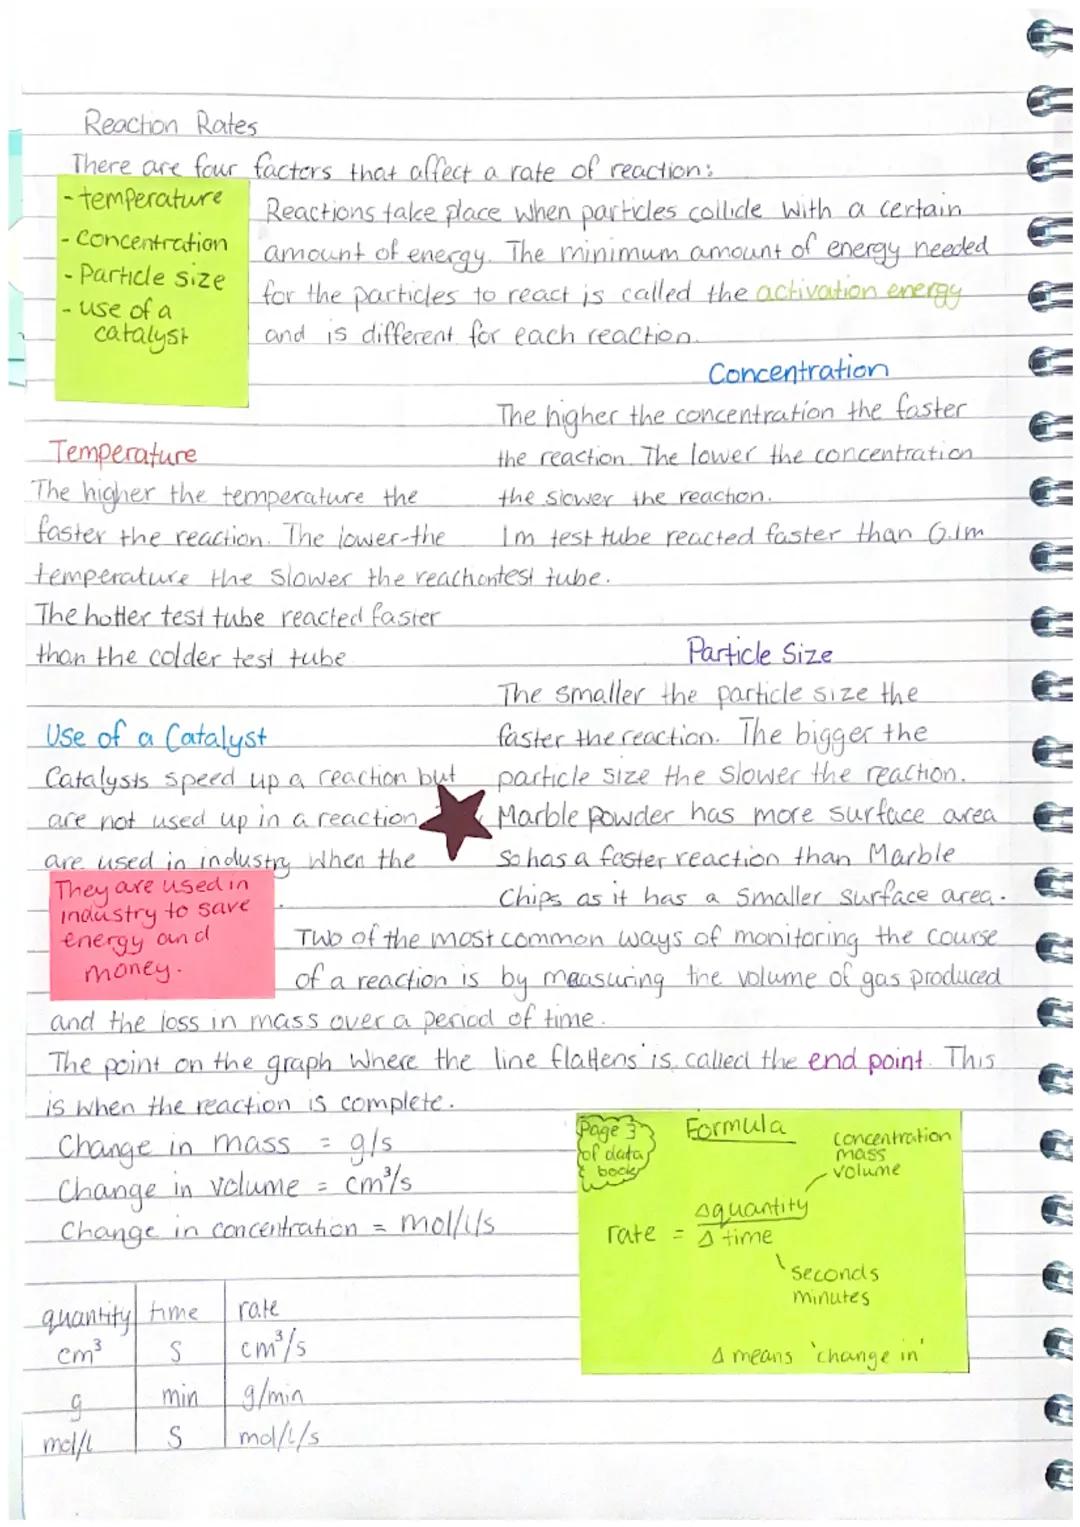 Reaction Rates
There are four factors that affect a rate of reaction:
- temperature
- Concentration
- Particle size
- use of a
catalyst
Reactions take place when particles collide with a certain
amount of energy. The minimum amount of energy needed
for the particles to react is called the activation energy
and is different for each reaction.
Concentration
The higher the concentration the faster
the reaction. The lower the concentration
the slower the reaction.
1m test tube reacted faster than 0.1m
test tube.
Temperature
The higher the temperature the
faster the reaction. The lower the
temperature the slower the reaction
The hotter test tube reacted faster
than the colder test tube
Particle Size
The smaller the particle size the
faster the reaction. The bigger the
particle size the slower the reaction.
Marble powder has more surface area
so has a faster reaction than Marble
Chips as it has a smaller surface area.
Use of a Catalyst
Catalysts speed up a reaction but
are not used up in a reaction
are used in industry when the
They are used in
industry to save
energy and
money.
Two of the most common ways of monitoring the course
of a reaction is by measuring the volume of gas produced
and the loss in mass over a period of time.
The point on the graph where the line flattens is called the end point. This
is when the reaction is complete.
Change in mass = g/s
Change in volume = cm³/s
Change in concentration = mol/l/s
Page 3
of data
book
Formula
concentration
mass
volume
rate = Δquantity
Δ time
seconds
minutes
Δ means 'change in'
quantity time rate
cm³ s cm³/s
g min g/min
mol/l s mol/l/s